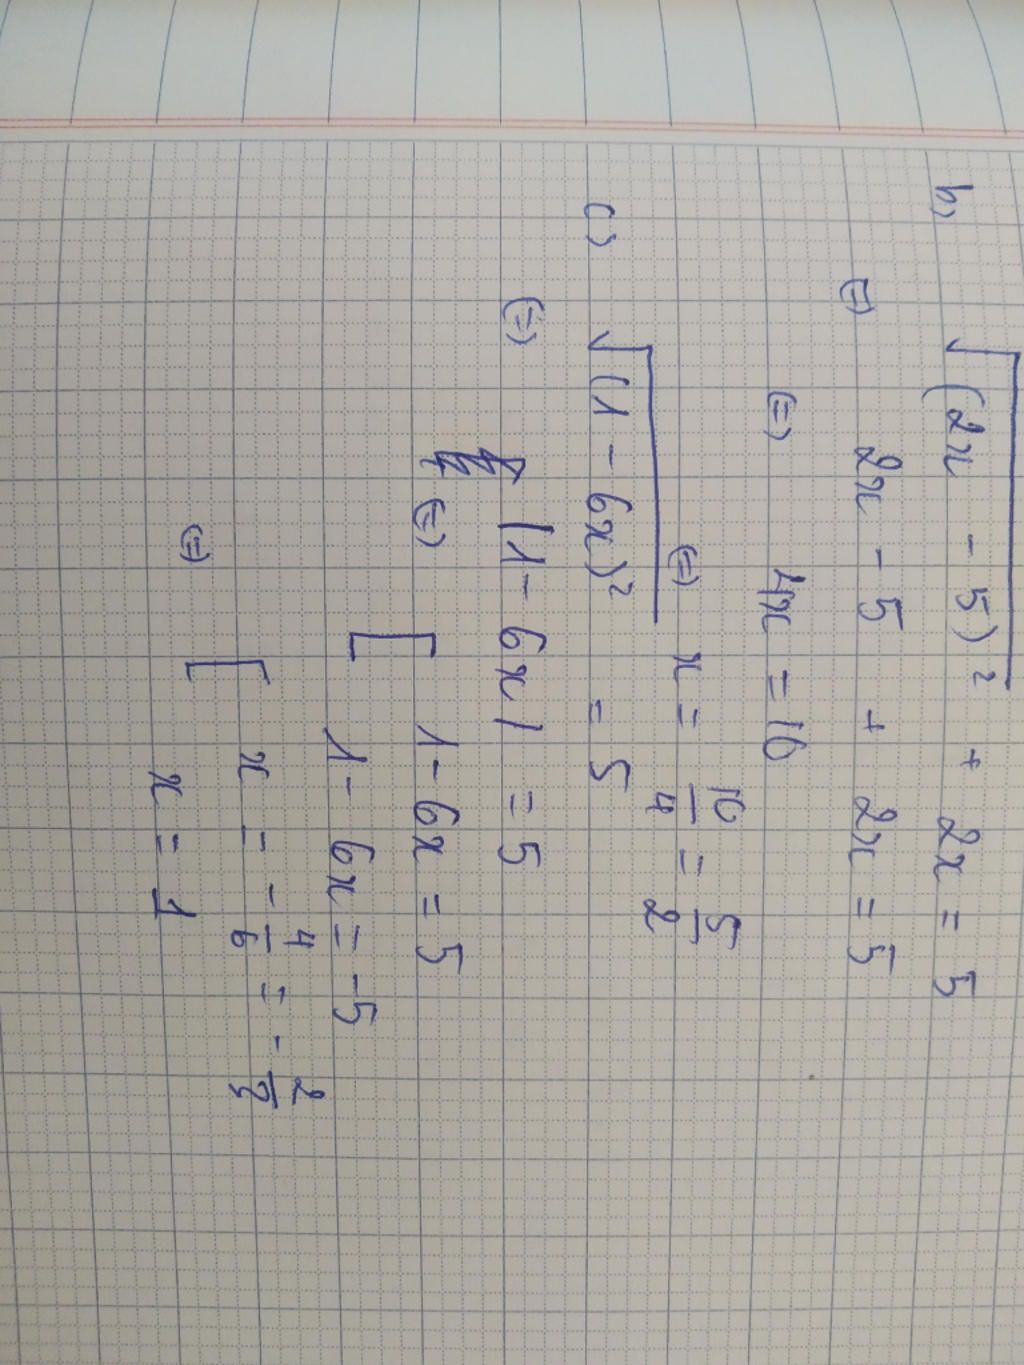 b) √(2x - 5)² + 2x = 5
⇔ 2x - 5 + 2x = 5
⇔ 4x = 10
⇔ x = 10/4 = 5/2
c) √(1 - 6x)² = 5
⇔ |1 - 6x| = 5
⇔ [ 1 - 6x = 5
1 - 6x = -5
⇔ [ x = -4/6 = -2/3
x = 1